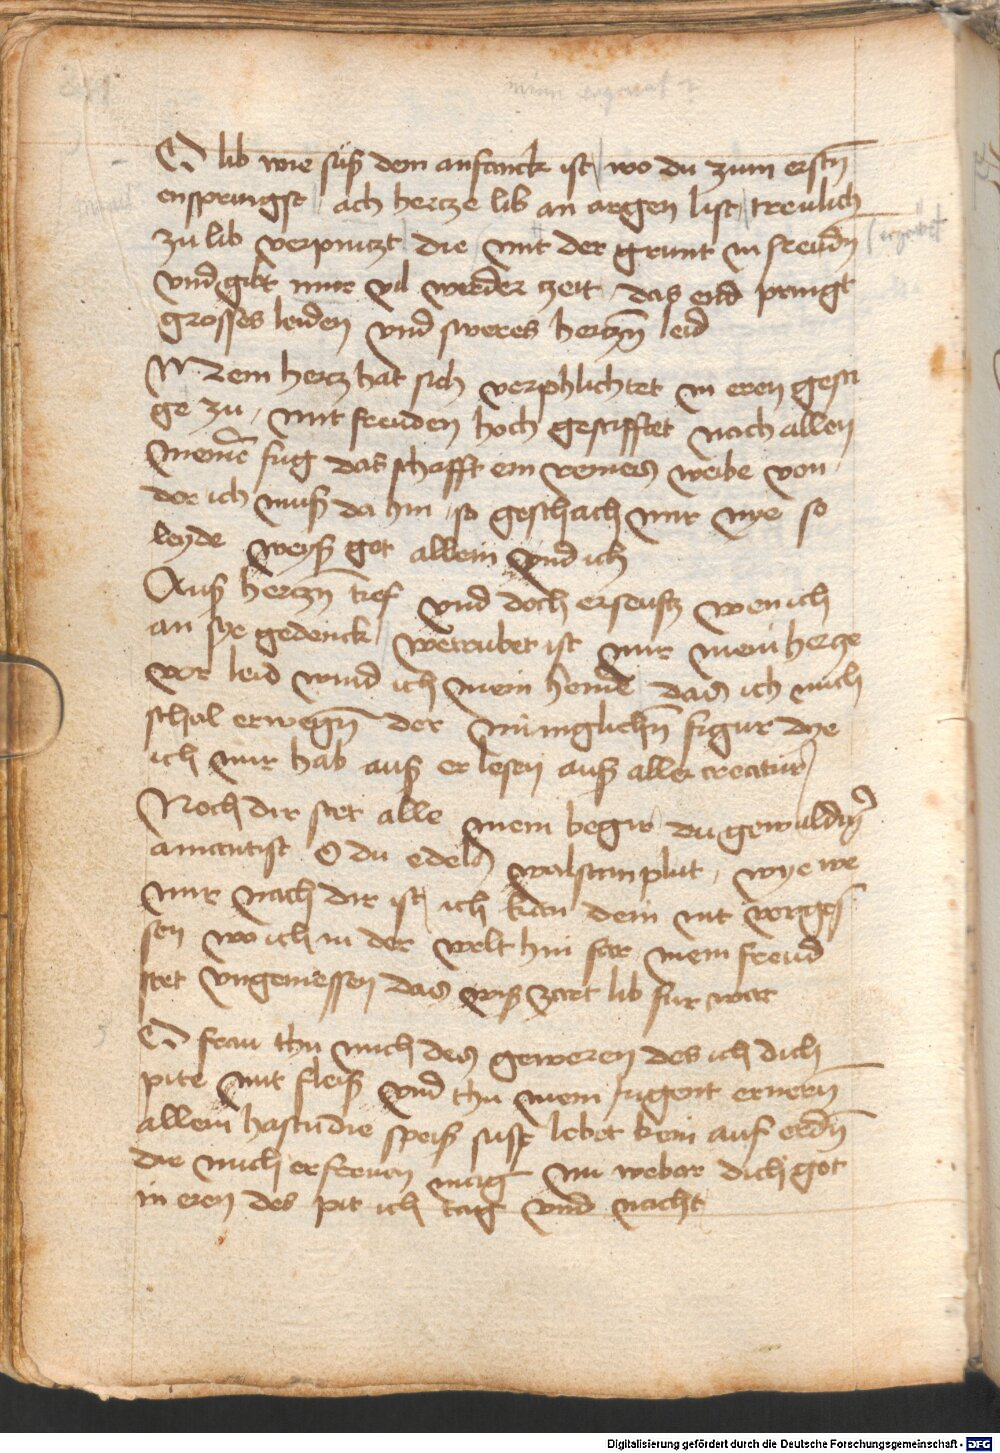 O lib wie süß dein anfanck ist / wo du zum erstn̄
ensprungst / ach hercze lib an argen list / treulich
zu lib verpint / die mit der grunt in freudn
vnd gibt mir vil werder czeit das end pringt
grosses leiden vnd sweres herczn̄ leid
Mein hercz hat sich verphlichtet in eren gesti
ge zu / mit freuden hoch gestifftet nach allen
meinē fug das schafft ein reines weibe von
der ich muß da hin / so geschach mir nye so
leyde weyß got allein vnd ich
Auß herczn̄ tief vnd doch erseufcz wen ich
an sye gedenck / betrubet ist mir mein hercze
vor leid wind ich mein hende das ich mich
schol erwegn̄ der miniglichn̄ figur dye
ich mir hab auß er lesen auß aller creatur
Noch dir stet alle mein begir du gewaldign̄
amantist O du edels balsam plut / wye we
mir nach dir ist / ich kan dein nit vergeß
sen wo ich in der welt hin far mein freud
stet vngemessen das wiß zart lib fur war
O frau thu mich des geweren des ich dich
pite mit fleiß vnd thu mein iugent ernern̄
allein hastu die speiß sust lebet kein auf erdn̄
die mich erfreuen mag nu bebar dich got
in eren des pit ich tag vnd nacht
Digitalisierung gefördert durch die Deutsche Forschungsgemeinschaft - DFG